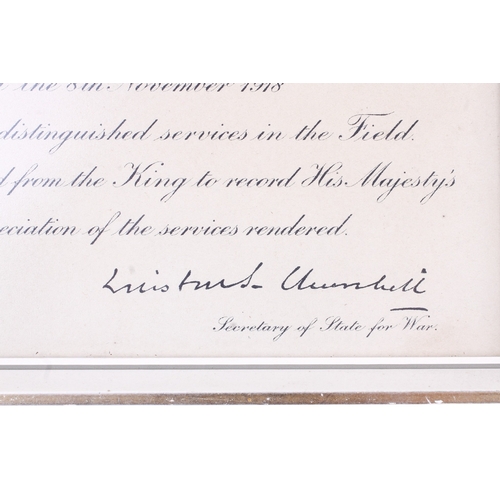 the 8th November 1918
distinguished services in the Field.
from the King to record His Majesty's
eciation of the services rendered.
Winston S. Churchill
Secretary of State for War.